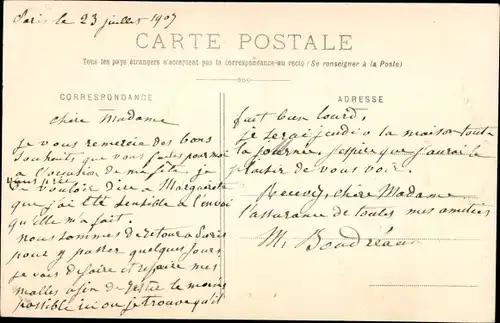 Paris le 23 juillet 1907
CARTE POSTALE
Tous les pays étrangers n'acceptent pas la correspondance au recto (Se renseigner à la Poste)
CORRESPONDANCE
ADRESSE
chère Madame
je vous remercie des bons
souhaits que vous faites pour moi
à l'occasion de ma fête je
vous prie
de vouloir dire à Marguerite
que j'ai été sensible à l'envoi
qu'elle m'a fait.
nous sommes de retour à Paris
pour y passer quelques jours
je vais défaire et refaire mes
malles afin de rester le moins
possible ici où je trouve qu'il
fait bien lourd,
je serai jeudi à la maison toute
la journée, j'espère que j'aurai le
plaisir de vous voir.
Recevez, chère Madame
l'assurance de toutes mes amitiés
M. Boudréaux